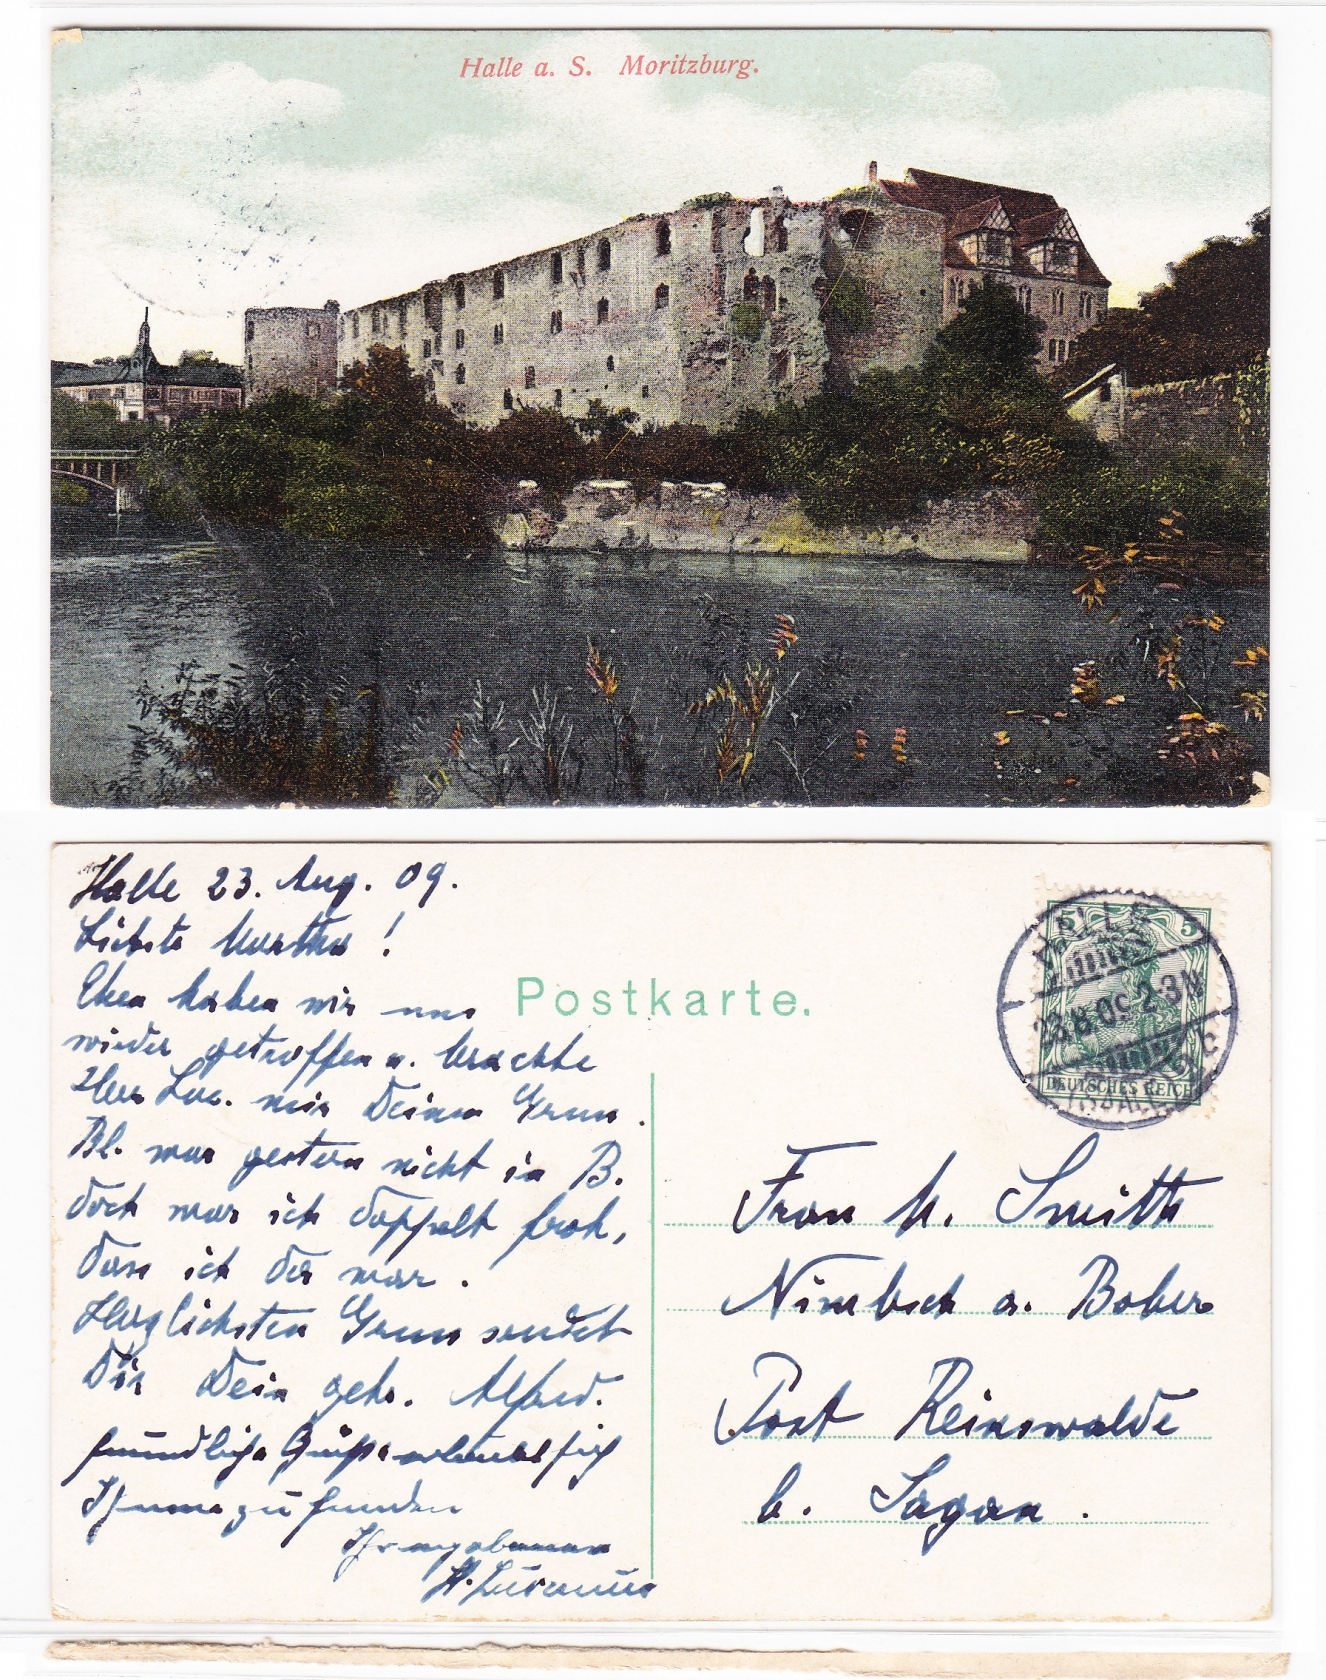 Halle a. S. Moritzburg.
Halle 23. Aug. 09.
Liebste Martha!
Eben haben wir uns
wieder getroffen u. brachte
Herr Luc. mir Deinen Gruss.
Bl. war gestern nicht in B.
doch war ich doppelt froh,
dass ich da war.
Herzlichsten Gruss sendet
Dir Dein getr. Alfred.
freundliche Grüße erlaubt sich
Ihnen zu senden
Ihr ergebener
Postkarte.
5 5
HALLE
23.8.09. 2-3N
(SAALE) 2 c
DEUTSCHES REICH
Frau M. Smith
Nimbsch a. Bober
Post Reinswalde
b. Sagan.